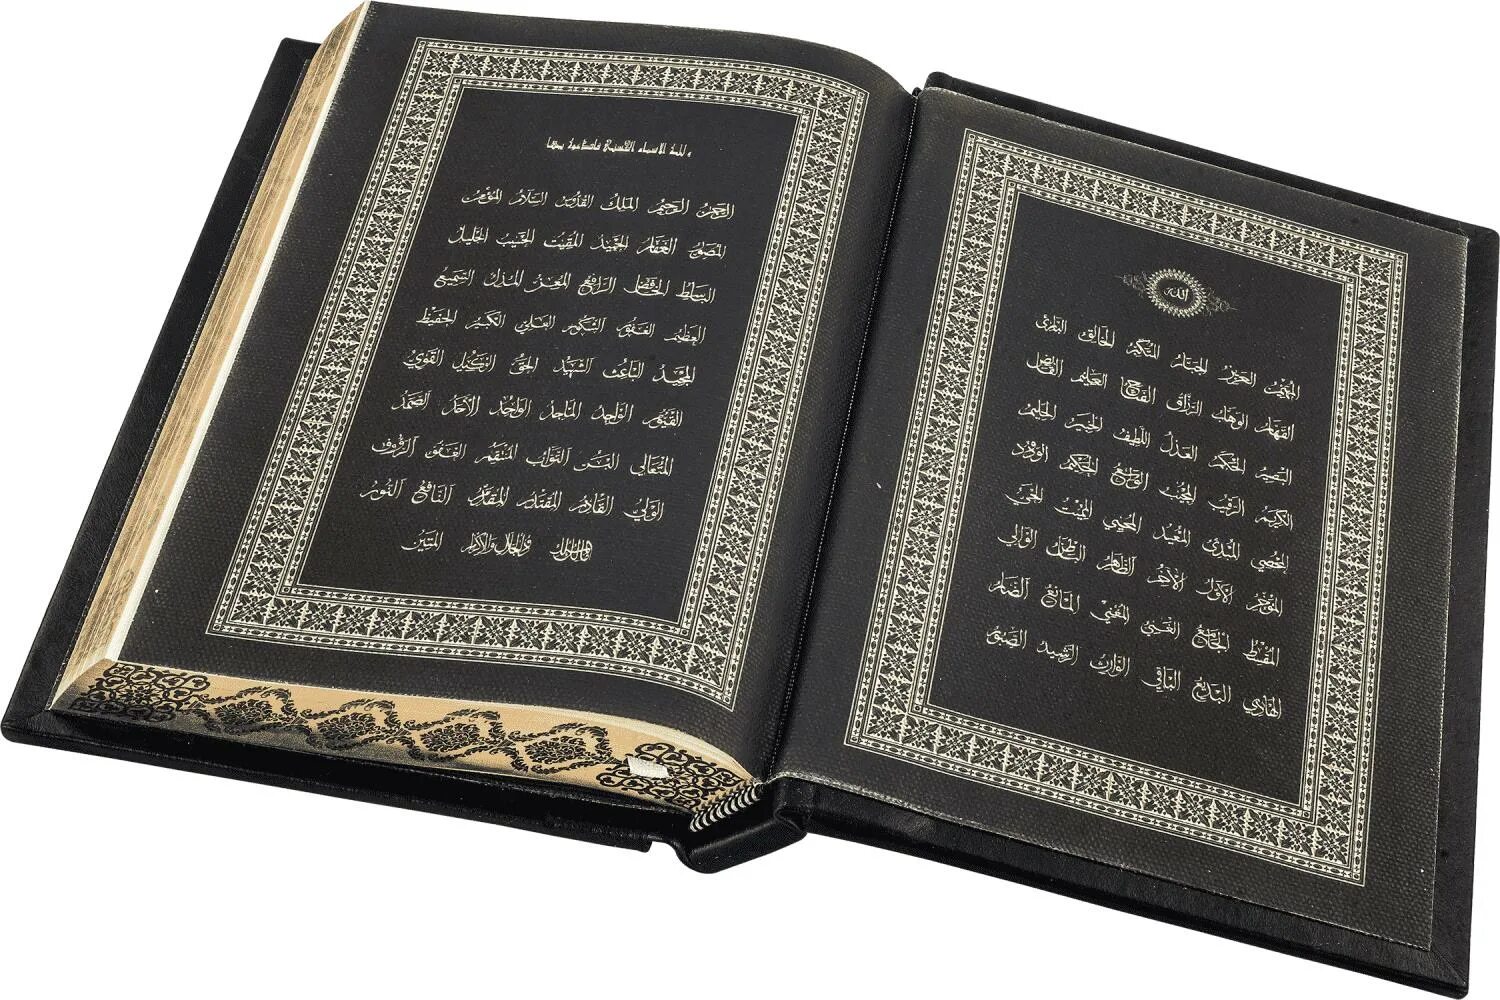 الله
المهيمن العزيز الجبار المتكبر الخالق البارئ
القهار الوهاب الرزاق الفتاح العليم القابض
البصير الحكم العدل اللطيف الخبير الحليم
الكريم الرقيب المجيب الواسع الحكيم الودود
المحصي المبدئ المعيد المحيي المميت الحي
المؤخر الأول الآخر الظاهر الباطن الوالي
المقسط الجامع الغني المغني المانع الضار
الهادي البديع الباقي الوارث الرشيد الصبور
ولله الاسماء الحسنى فادعوه بها
الرحمن الرحيم الملك القدوس السلام المؤمن
المصور الغفار الحميد المقيت الحسيب الجليل
الباسط الخافض الرافع المعز المذل السميع
العظيم الغفور الشكور العلي الكبير الحفيظ
المجيد الباعث الشهيد الحق الوكيل القوي
القيوم الواجد الماجد الواحد الأحد الصمد
المتعالي البر التواب المنتقم العفو الرؤوف
الولي القادر المقتدر المقدم النافع النور
ذو الجلال والإكرام المتين